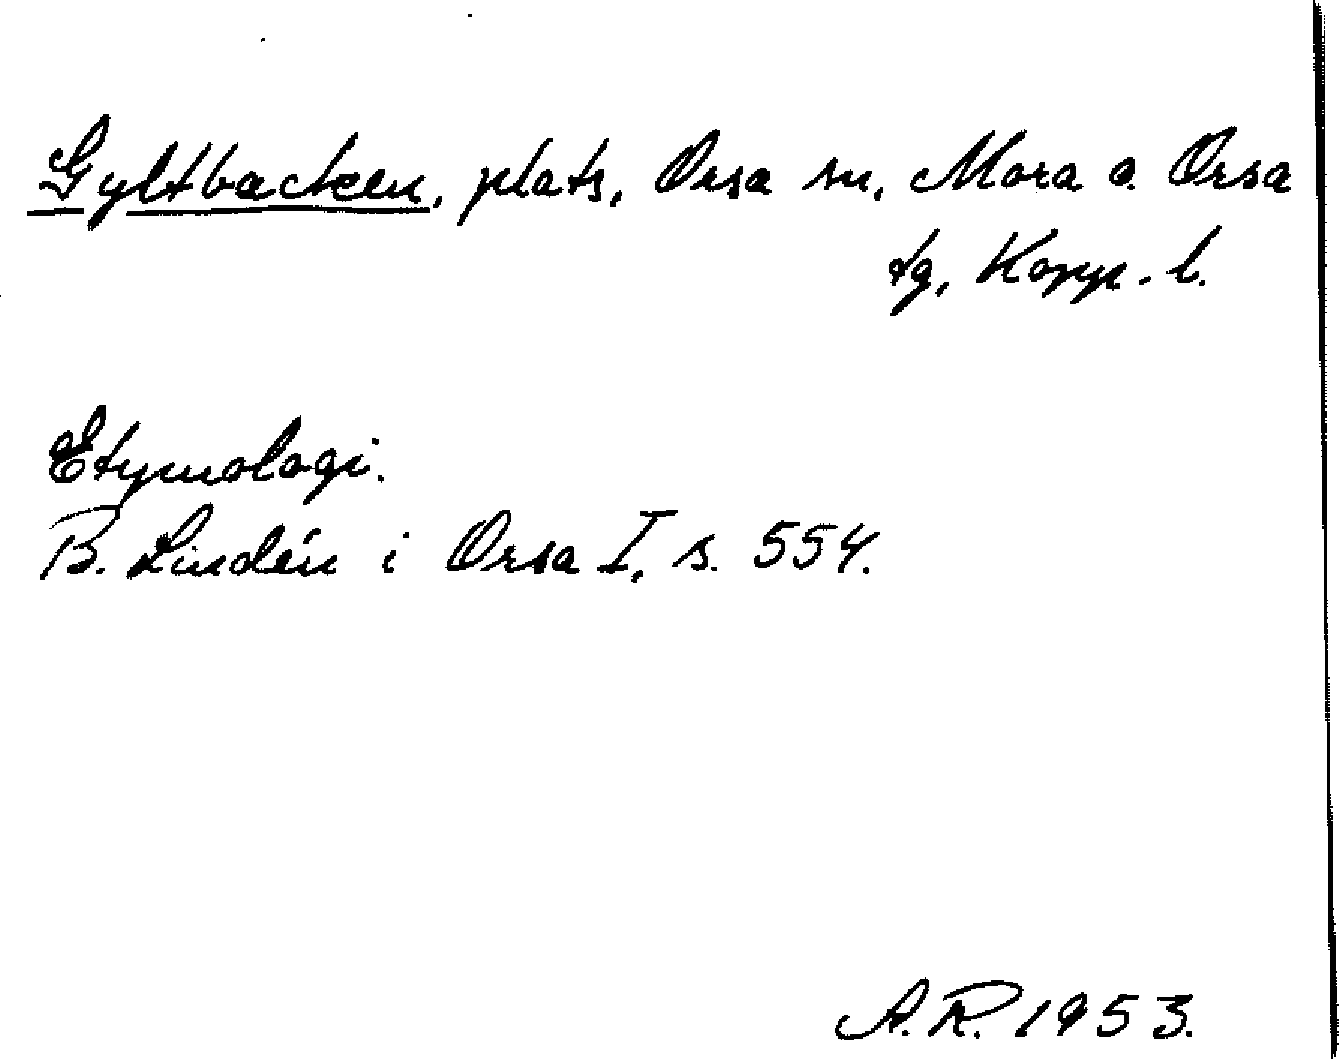 Gyltbacken, plats, Orsa sn, Mora o. Orsa
tg, Kopp. l.
Etymologi.
B. Lindén i Orsa I, s. 554.
A.R. 1953.